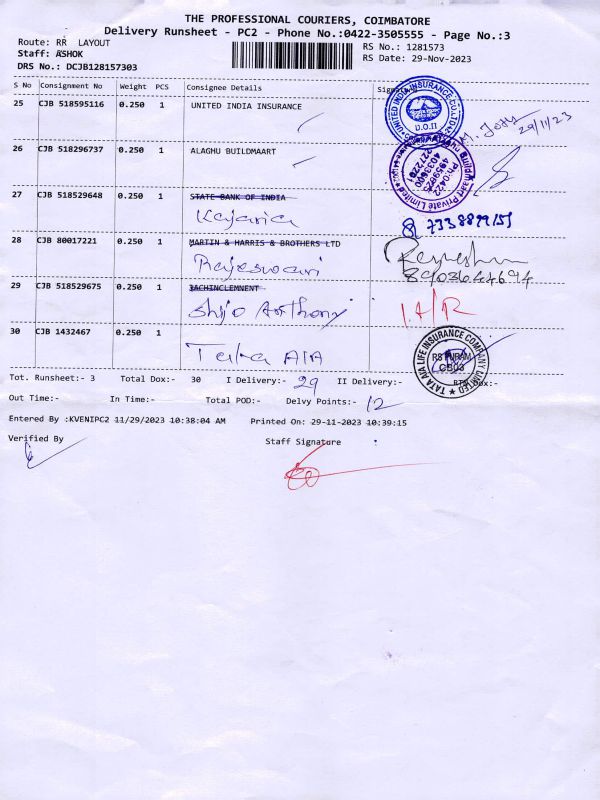 THE PROFESSIONAL COURIERS, COIMBATORE
Delivery Runsheet - PC2 - Phone No.:0422-3505555 - Page No.:3
Route: RR LAYOUT
RS No.: 1281573
Staff: ASHOK
RS Date: 29-Nov-2023
DRS No.: DCJB128157303
S No Consignment No Weight PCS Consignee Details Signature
25 CJB 518595116 0.250 1 UNITED INDIA INSURANCE
UNITED INDIA INSURANCE CO. LTD
D.O.II
29/11/23
26 CJB 518296737 0.250 1 ALAGHU BUILDMAART
Alaghu Buildmaart Private Limited
Ph:0422
27 CJB 518529648 0.250 1 STATE BANK OF INDIA
Kajaria
28 CJB 80017221 0.250 1 MARTIN & HARRIS & BROTHERS LTD
Rajeswari
8903644694
29 CJB 518529675 0.250 1 JACHINCLEMNENT
Shijo Anthony
30 CJB 1432467 0.250 1
Tata AIA
TATA AIA LIFE INSURANCE COMPANY LIMITED
RS PURAM
Tot. Runsheet:- 3 Total Dox:- 30 I Delivery:- 29 II Delivery:-
Out Time:- In Time:- Total POD:- Delvy Points:- 12
Entered By :KVENIPC2 11/29/2023 10:38:04 AM Printed On: 29-11-2023 10:39:15
Verified By Staff Signature :